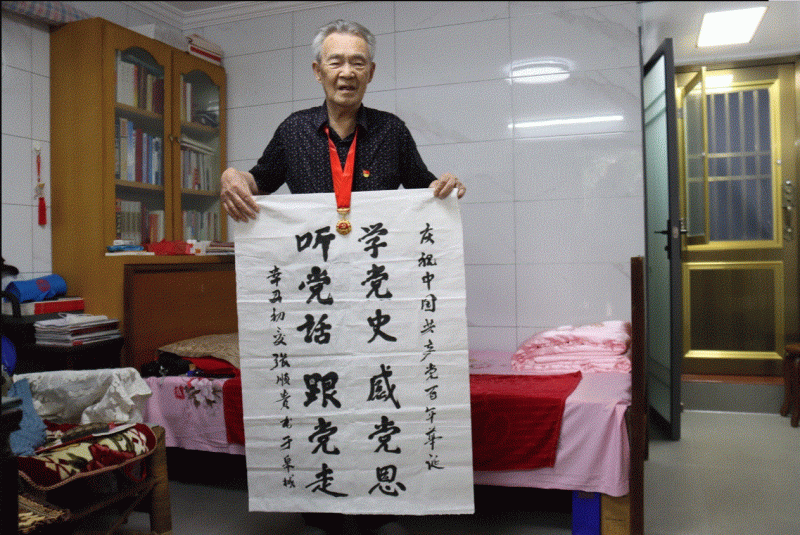 庆祝中国共产党百年华诞
学党史 感党恩
听党话 跟党走
辛丑初夏张顺贵书于皋城